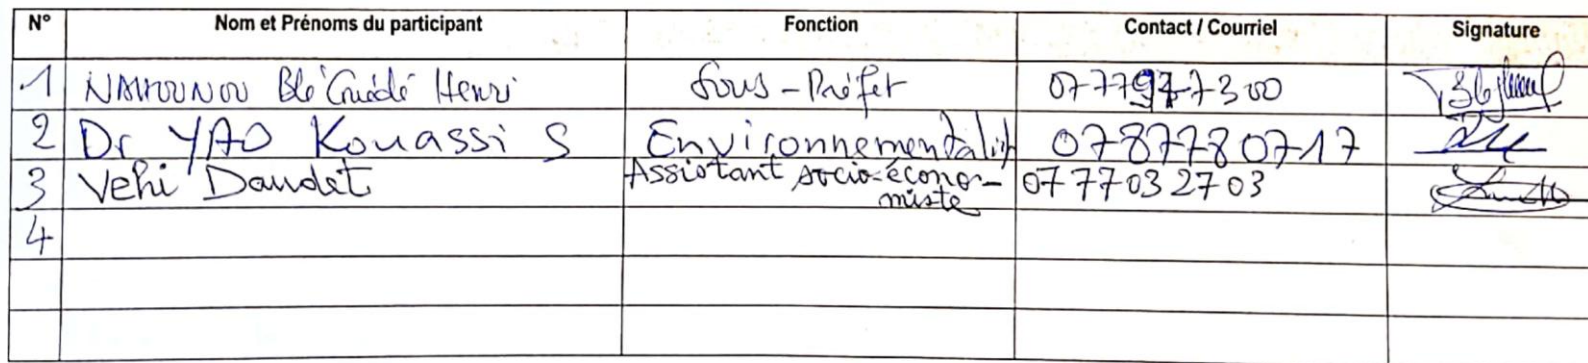 N° Nom et Prénoms du participant Fonction Contact / Courriel Signature
1 NAHOUNOU Blé Guédé Henri Sous-Préfet 0777977300
2 Dr YAO Kouassi S Environnementalist 0787780717
3 Vehi Daudet Assistant socio-écono-miste 0777032703
4